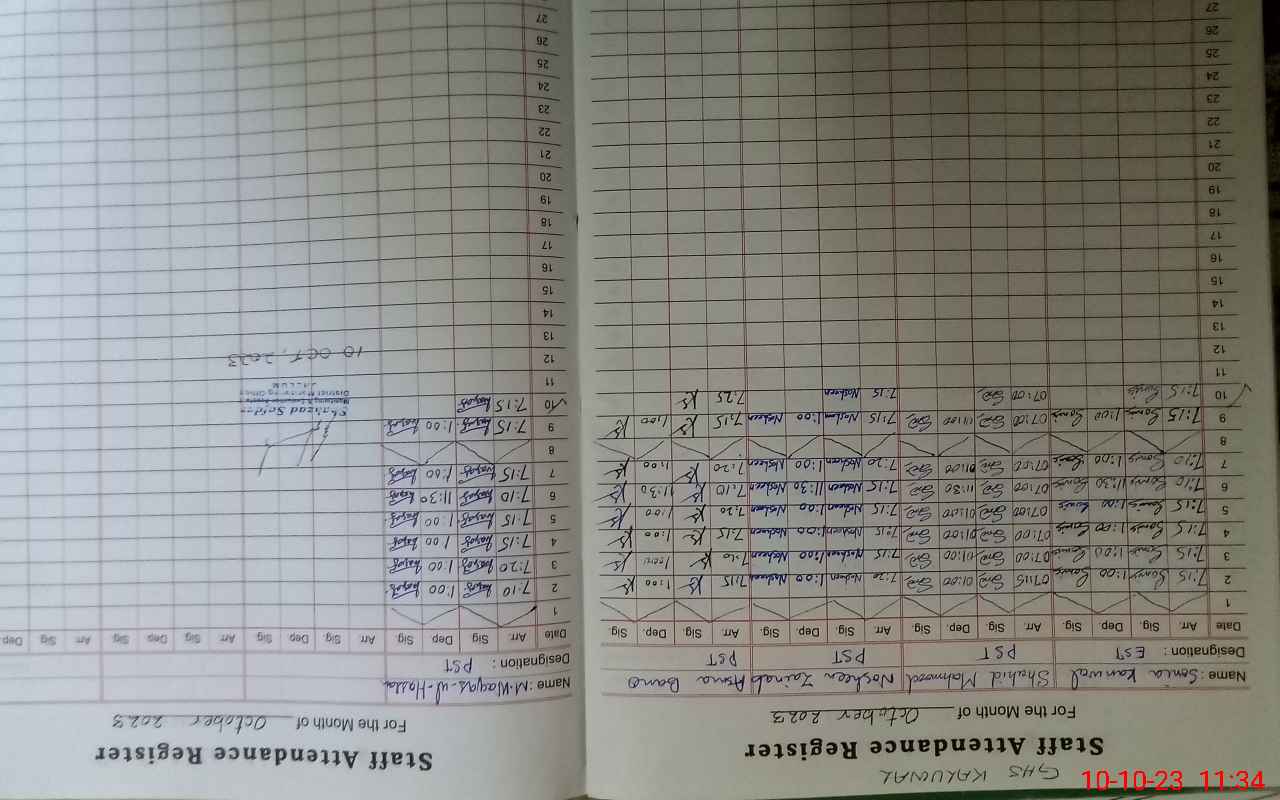 10-10-23 11:34
GHS KALUWAL
Staff Attendance Register
For the Month of October 2023
Name: Sonia Kanwal Shahid Mahmood Nosheen Zainab Asma Bano
Designation: EST PST PST PST
Date Arr. Sig. Dep. Sig. Arr. Sig. Dep. Sig. Arr. Sig. Dep. Sig. Arr. Sig. Dep. Sig.
1
2 7:15 1:00 07:15 01:00 7:20 Nosheen 1:00 Nosheen 7:15 1:00
3 7:15 1:00 07:00 01:00 7:15 Nosheen 1:00 Nosheen 1:00
4 7:15 1:00 07:00 01:00 7:15 Nosheen 1:00 Nosheen 7:15 1:00
5 7:15 1:00 07:00 01:00 7:15 Nosheen 1:00 Nosheen 7:20 1:00
6 7:10 11:30 07:00 11:30 7:15 Nosheen 11:30 Nosheen 7:10 11:30
7 7:10 1:00 07:00 01:00 7:20 Nosheen 1:00 Nosheen 7:20 1:00
8
9 7:15 1:00 07:00 01:00 7:15 Nosheen 1:00 Nosheen 7:15 1:00
10 7:15 07:00 7:15 Nosheen 7:25
11
12
13
14
15
16
17
18
19
20
21
22
23
24
25
26
27
Staff Attendance Register
For the Month of October 2023
Name: M-Waqas-ul-Hassan
Designation: PST
Date Arr. Sig. Dep. Sig. Arr. Sig. Dep. Sig. Arr. Sig. Dep. Sig. Arr. Sig. Dep.
1
2 7:10 Waqas 1:00 Waqas
3 7:20 Waqas 1:00 Waqas
4 7:15 Waqas 1:00 Waqas
5 7:15 Waqas 1:00 Waqas
6 7:10 Waqas 11:30 Waqas
7 7:15 Waqas 1:00 Waqas
8
9 7:15 Waqas 1:00 Waqas
10 7:15 Waqas
District Monitoring Officer
JHELUM
11
10 OCT, 2023
12
13
14
15
16
17
18
19
20
21
22
23
24
25
26
27